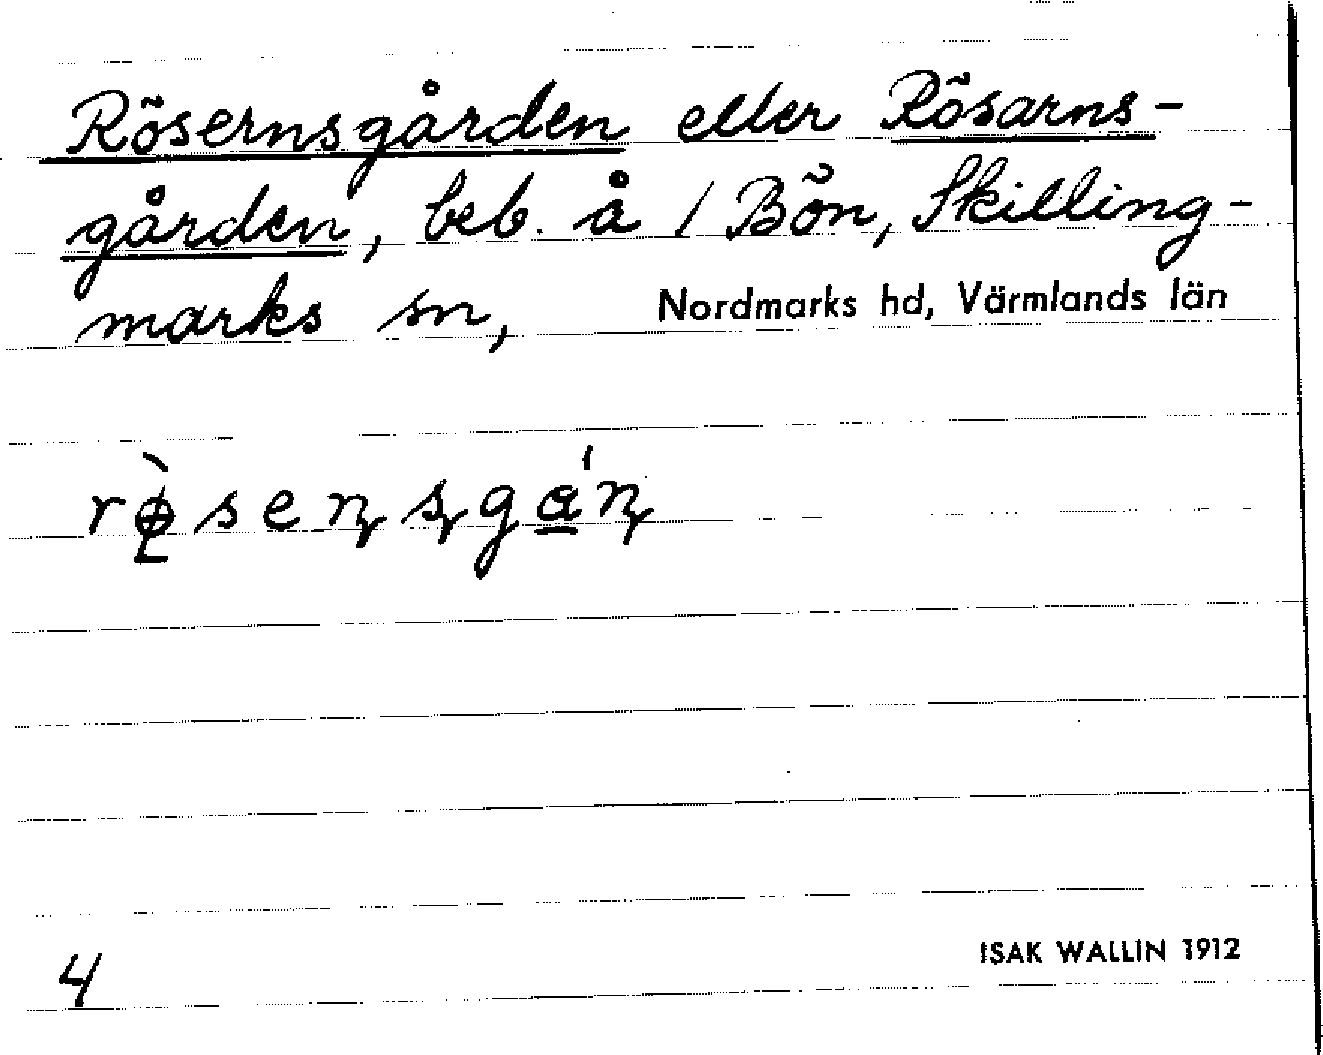 Rösernsgården eller Rösarns-
gården, beb. å 1 Bön, Skilling-
marks sn, Nordmarks hd, Värmlands län
4
ISAK WALLIN 1912